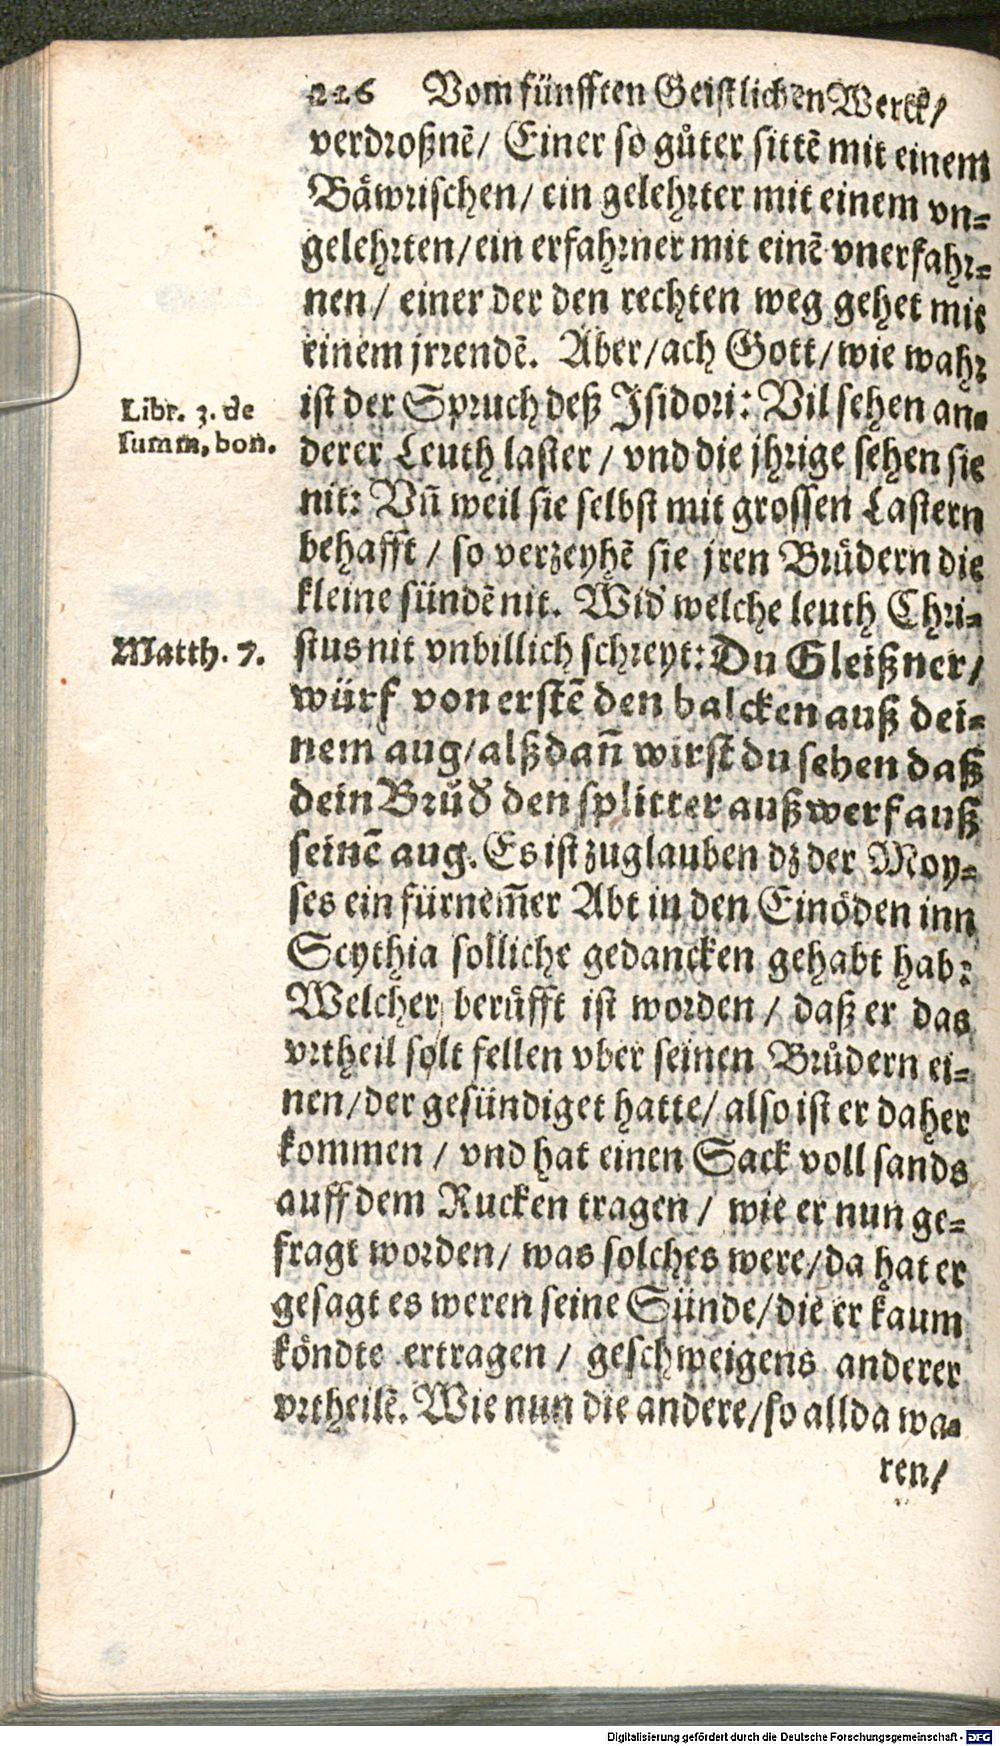 226 Vom fünfften Geistlichen Werck/
verdroßnẽ/ Einer so gůter sittẽ mit einem
Bäwrischen/ ein gelehrter mit einem vn=
gelehrten/ ein erfahrner mit einẽ vnerfahr=
nen/ einer der den rechten weg gehet mit
einem jrrendẽ. Aber/ ach Gott/ wie wahr
Libr. 3. de
summ, bon.
ist der Spruch deß Isidori: Vil sehen an=
derer Leuth laster / vnd die jhrige sehen sie
nit: Vñ weil sie selbst mit grossen Lastern
behafft / so verzeyhẽ sie jren Brüdern die
kleine sündẽ nit. Wid welche leuth Chri=
Matth. 7.
stus nit vnbillich schreyt: Du Gleißner/
würf von erstẽ den balcken auß dei=
nem aug/ alßdañ wirst du sehen daß
dein Brůd den splitter außwerf auß
seinẽ aug. Es ist zuglauben dz der Moy=
ses ein fürnem̃er Abt in den Einöden inn
Scythia solliche gedancken gehabt hab:
Welcher berüfft ist worden / daß er das
vrtheil solt fellen vber seinen Brůdern ei=
nen/ der gesündiget hatte/ also ist er daher
kommen / vnd hat einen Sack voll sands
auff dem Rucken tragen / wie er nun ge=
fragt worden/ was solches were/ da hat er
gesagt es weren seine Sünde/ die er kaum
köndte ertragen / geschweigens anderer
vrtheilẽ. Wie nun die andere/ so allda wa=
ren/
Digitalisierung gefördert durch die Deutsche Forschungsgemeinschaft - DFG